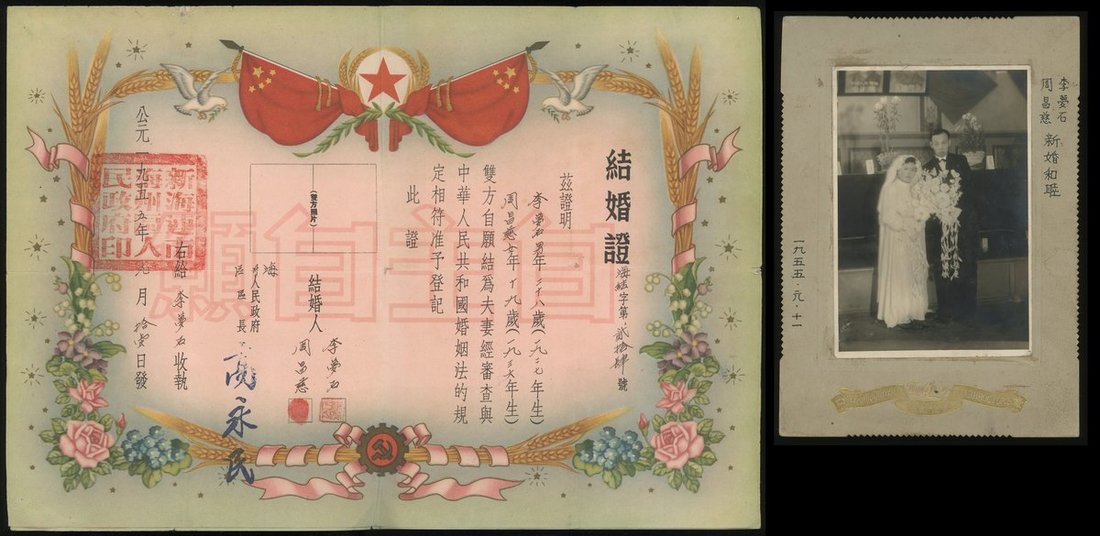 結婚證
海結字第貳拾肆號
茲證明
李夢石男年二十八歲(一九二七年生)
周昌慈女年十九歲(一九三六年生)
雙方自願結為夫妻經審查與
中華人民共和國婚姻法的規
定相符准予登記
此證
(雙方照片)
結婚人
李夢石
周昌慈
人民政府
區長
高永民
右給李夢石收執
公元一九五五年元月拾壹日發
民政府印
自主自願
李夢石
周昌慈
新婚和睦
一九五五·元·十一